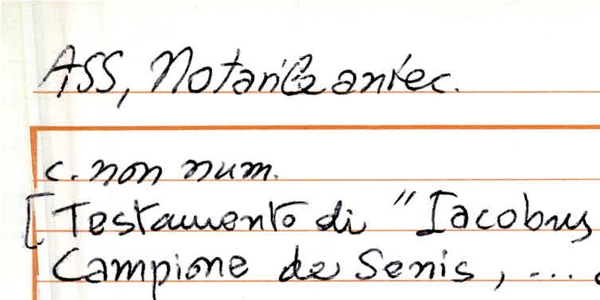 ASS, Notarile antec.
c. non num.
[Testamento di "Iacobus
Campione de Senis, ...